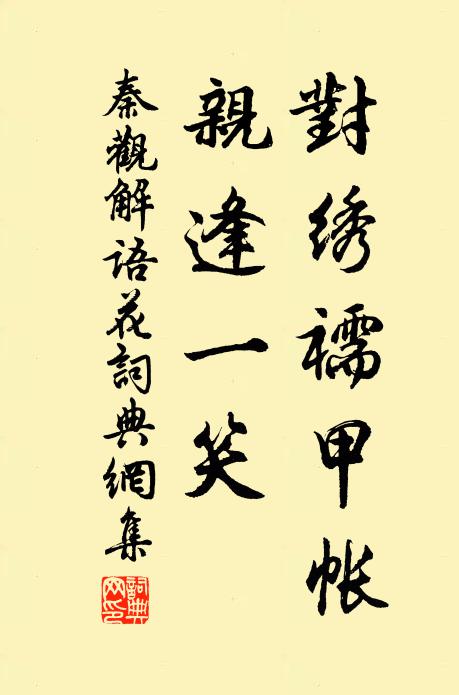 對綉襦甲帳
親逢一笑
秦觀解語花詞典網集
詞典网印